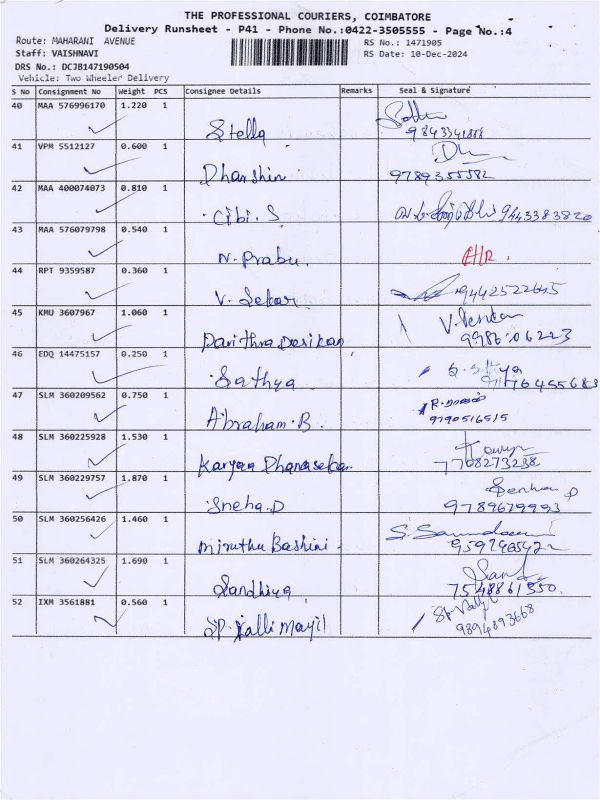 THE PROFESSIONAL COURIERS, COIMBATORE
Delivery Runsheet - P41 - Phone No.:0422-3505555 - Page No.:4
Route: MAHARANI AVENUE
RS No.: 1471905
Staff: VAISHNAVI
RS Date: 10-Dec-2024
DRS No.: DCJB147190504
Vehicle: Two Wheeler Delivery
S No Consignment No Weight PCS Consignee Details Remarks Seal & Signature
40 MAA 576996170 1.220 1
Stella
41 VPM 5512127 0.600 1
Dharshin 9789355582
42 MAA 400074073 0.810 1
Cibi. S 9443383820
43 MAA 576079798 0.540 1
N. Prabu.
44 RPT 9359587 0.360 1
V. Sekar
45 KMU 3607967 1.060 1
Pavithra Desikan
46 EDQ 14475157 0.250 1
Sathya
47 SLM 360209562 0.750 1
Abraham. B. 9790516515
48 SLM 360225928 1.530 1
Karyaa Dhanasekar 7708273238
49 SLM 360229757 1.870 1
Sneha. D 9789679993
50 SLM 360256426 1.460 1
Miruthu Bashini
51 SLM 360264325 1.690 1
Sandhiya 7548861350
52 IXM 3561881 0.560 1
SP. Valli Mayil 9894893668